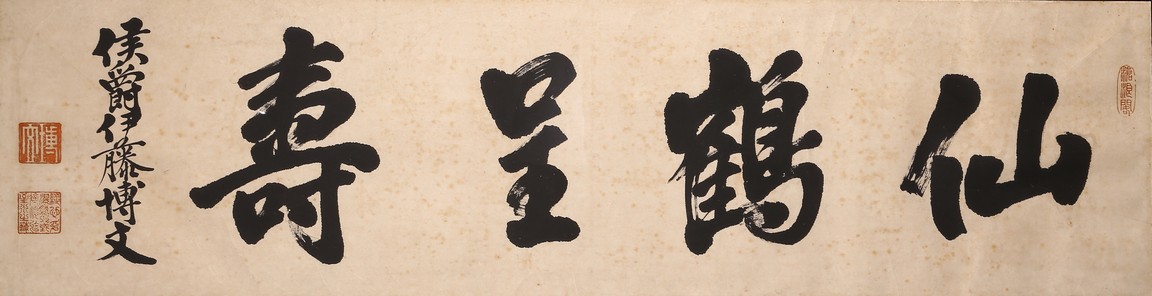 仙鶴呈壽
侯爵伊藤博文
博文